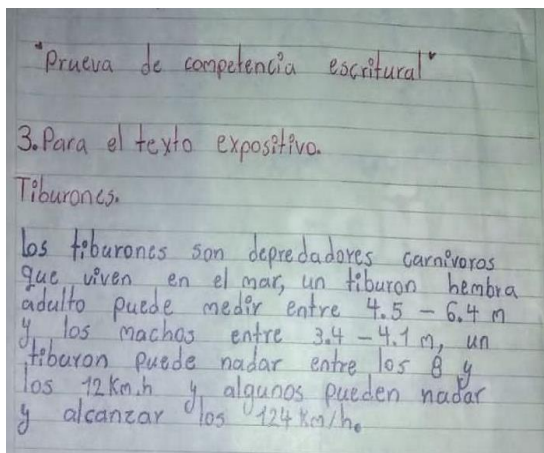 "Prueva de competencia escritural"
3. Para el texto expositivo.
Tiburones.
los tiburones son depredadores carnivoros
que viven en el mar, un tiburon hembra
adulto puede medir entre 4.5 - 6.4 m
y los machos entre 3.4 - 4.1 m, un
tiburon puede nadar entre los 8 y
los 12 Km.h y algunos pueden nadar
y alcanzar los 124 Km/h.